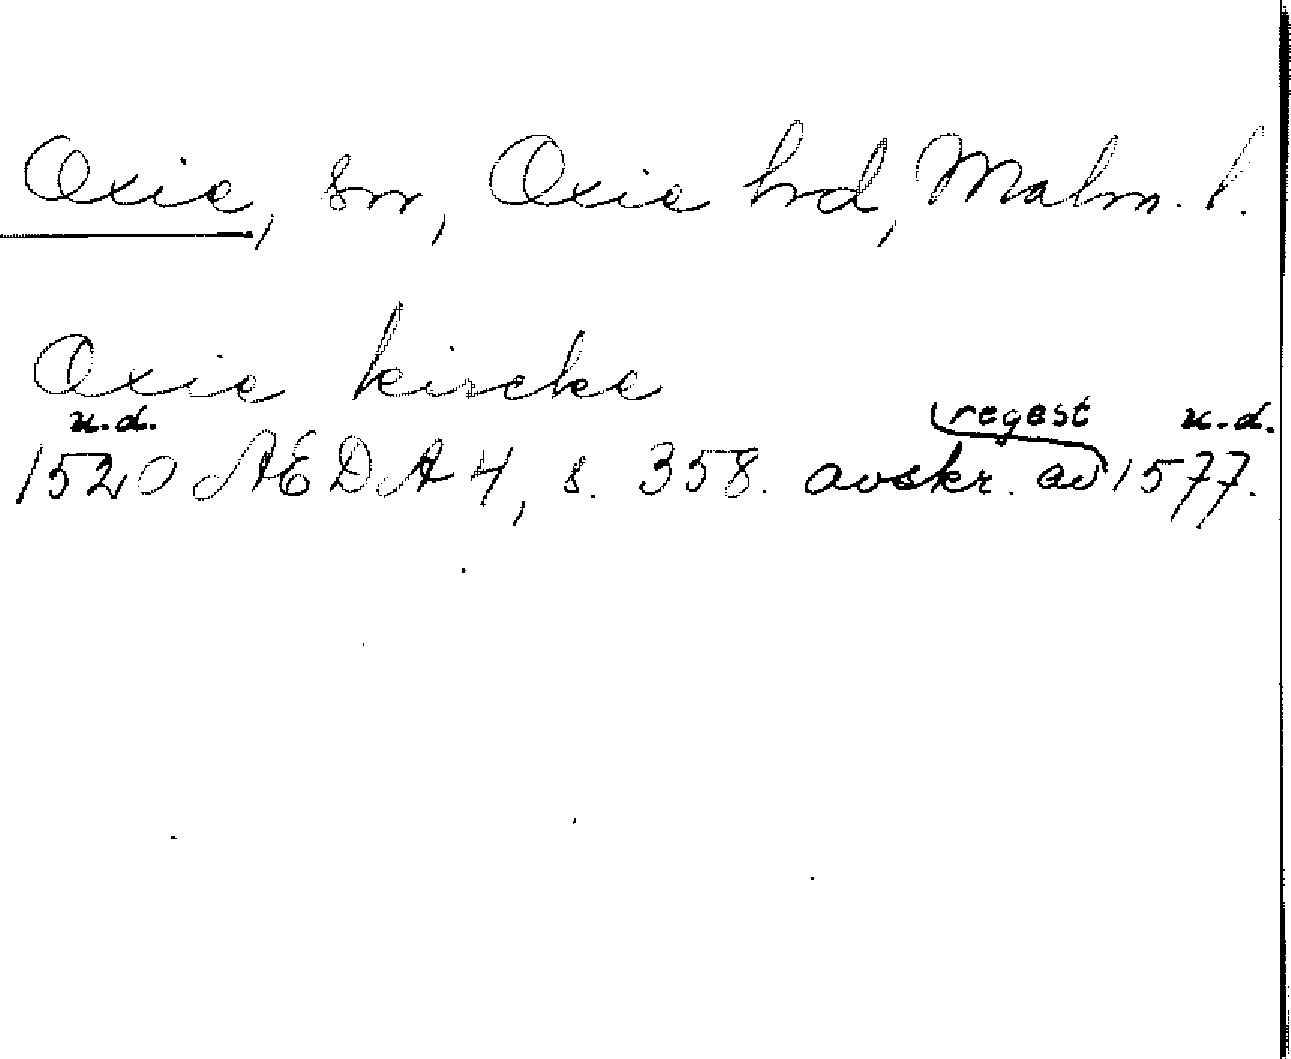 Oxie, sn, Oxie hrd, Malm. l.
Oxie kircke
u.d. regest u.d.
1520 ÆDA 4, s. 358. avskr. av 1577.